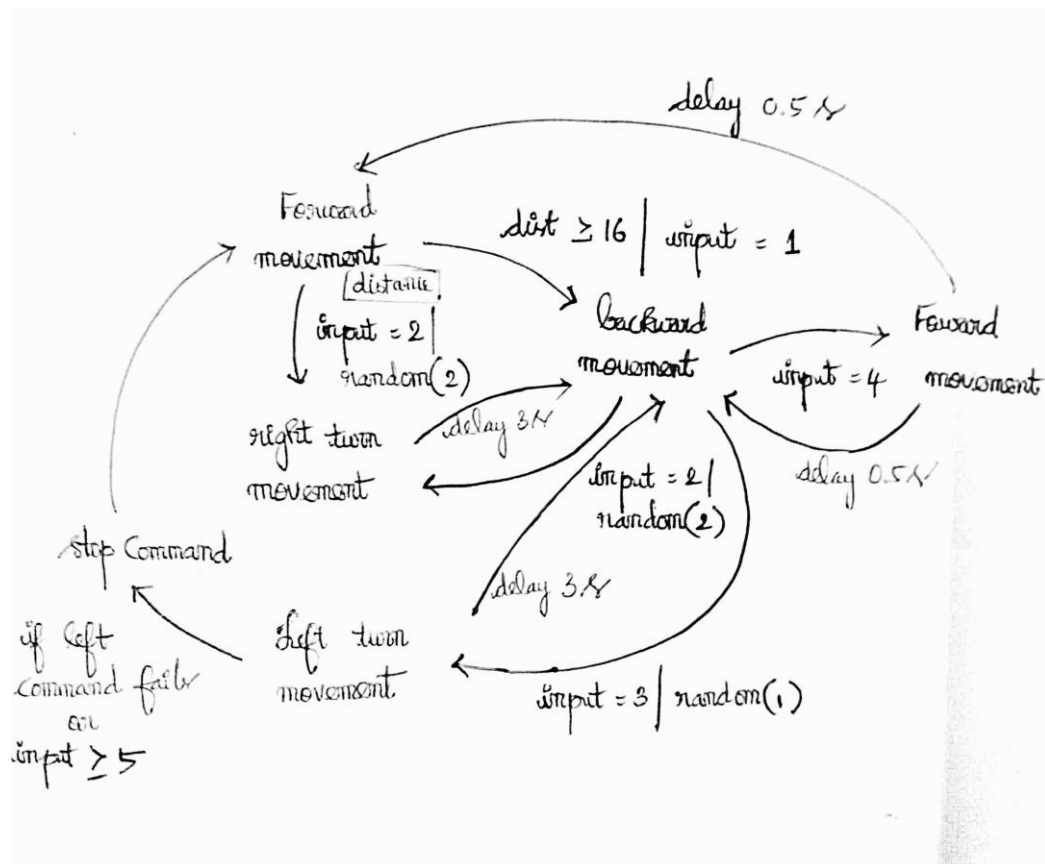 delay 0.5s
Forward
movement
distance
dist ≥ 16 | input = 1
input = 2 |
random(2)
backward
movement
Foward
movement
input = 4
delay 0.5s
right turn
movement
delay 3s
input = 2 |
random(2)
stop Command
delay 3s
if left
Command fails
or
input ≥ 5
Left turn
movement
input = 3 | random(1)